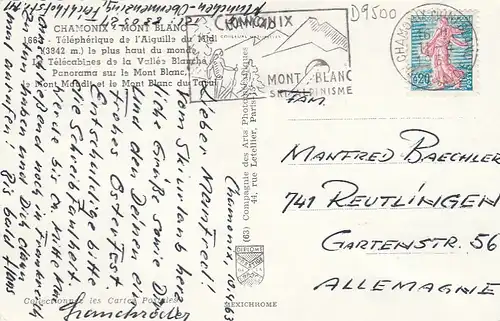 CHAMONIX - MONT BLANC
Téléphérique de l'Aiguille du Midi
(3842 m.) le plus haut du monde
Télécabines de la Vallée Blanche
Panorama sur le Mont Blanc,
le Mont Maudit et le Mont Blanc du Tacul
CHAMONIX
MONT BLANC
SKI ALPINISME
D9500
CHAMONIX
0,20
Chamonix, 10.4.63
Lieber Manfred!
Vom Skiurlaub herz-
liche Grüße sowie Dir
und den Deinen ein
frohes Osterfest.
Entschuldige bitte
die Schreibfaulheit.
Werde bis Mitte
noch in Frankreich
und Dich dann
anrufen! Bis bald Hans
FAM.
MANFRED BAECHLER
741 REUTLINGEN
GARTENSTR. 56
ALLEMAGNE
(63) Compagnie des Arts Photomécaniques
44, rue Letellier, Paris
DIPLOME
MEXICHROME
Collectionnez les Cartes Postales